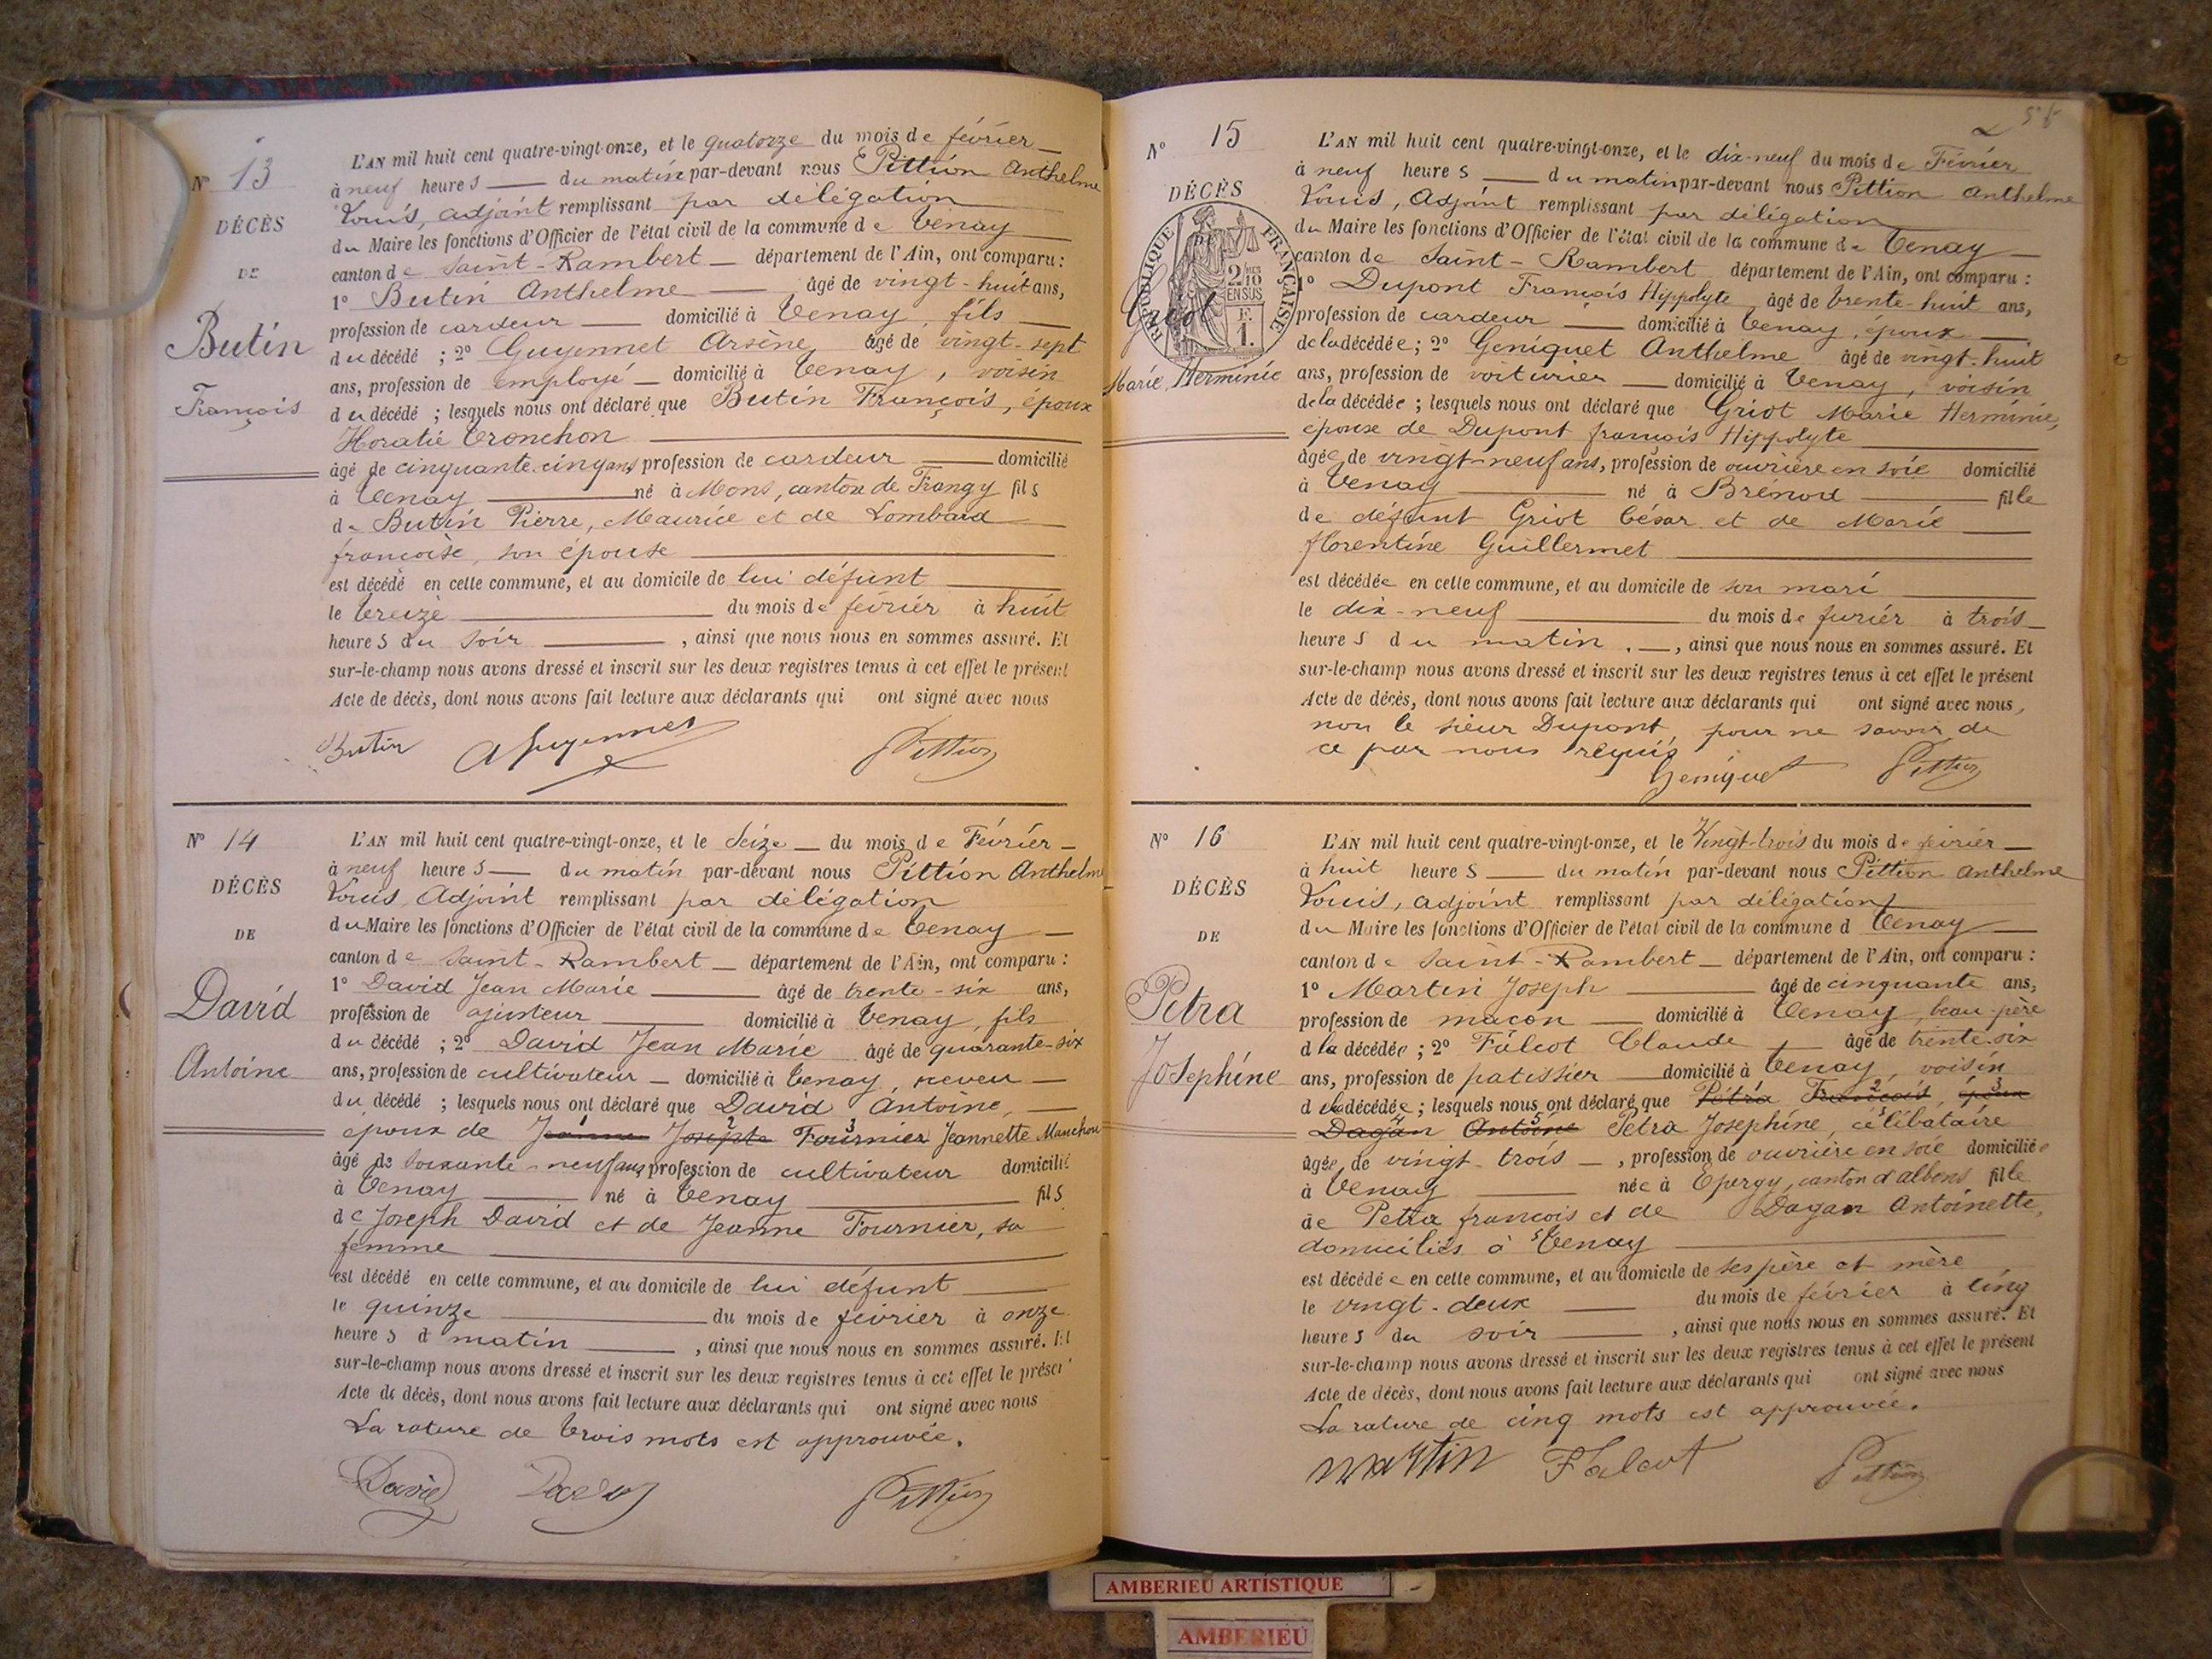 N° 13
DÉCÈS
DE
Butin
François
L'AN mil huit cent quatre-vingt-onze, et le quatorze du mois de février
à neuf heures du matin par-devant nous Pittion Anthelme
Louis, adjoint remplissant par délégation
du Maire les fonctions d'Officier de l'état civil de la commune de Tenay
canton de Saint-Rambert département de l'Ain, ont comparu :
1° Butin Anthelme âgé de vingt-huit ans,
profession de cardeur domicilié à Tenay, fils
du décédé ; 2° Guyennet Arsène âgé de vingt-sept
ans, profession de employé domicilié à Tenay, voisin
du décédé ; lesquels nous ont déclaré que Butin François, époux
Horatie Tronchon
âgé de cinquante-cinq ans profession de cardeur domicilié
à Tenay né à Mons, canton de Frangy fils
de Butin Pierre, Maurice et de Lombard
françoise, son épouse
est décédé en cette commune, et au domicile de lui défunt
le treize du mois de février à huit
heures du soir, ainsi que nous nous en sommes assuré. Et
sur-le-champ nous avons dressé et inscrit sur les deux registres tenus à cet effet le présent
Acte de décès, dont nous avons fait lecture aux déclarants qui ont signé avec nous
Butin A Guyennet Pittion
N° 14
DÉCÈS
DE
David
Antoine
L'AN mil huit cent quatre-vingt-onze, et le Seize du mois de Février
à neuf heures du matin par-devant nous Pittion Anthelme
Louis, Adjoint remplissant par délégation
du Maire les fonctions d'Officier de l'état civil de la commune de Tenay
canton de Saint-Rambert département de l'Ain, ont comparu :
1° David Jean Marie âgé de trente-six ans,
profession de ajusteur domicilié à Tenay, fils
du décédé ; 2° David Jean Marie âgé de quarante-six
ans, profession de cultivateur domicilié à Tenay, neveu
du décédé ; lesquels nous ont déclaré que David Antoine,
époux de Jeanne Josepte Fournier Jeannette Manchon
âgé de soixante-neuf ans profession de cultivateur domicilié
à Tenay né à Tenay fils
de Joseph David et de Jeanne Fournier, sa
femme
est décédé en cette commune, et au domicile de lui défunt
le quinze du mois de février à onze
heures d matin, ainsi que nous nous en sommes assuré. Et
sur-le-champ nous avons dressé et inscrit sur les deux registres tenus à cet effet le présent
Acte de décès, dont nous avons fait lecture aux déclarants qui ont signé avec nous
La rature de trois mots est approuvée.
David David Pittion
N° 15
DÉCÈS
DE
RÉPUBLIQUE FRANÇAISE
2/10 EN SUS
F. 1.
Griot
Marie Herminie
L'AN mil huit cent quatre-vingt-onze, et le dix-neuf du mois de Février
à neuf heures du matin par-devant nous Pittion Anthelme
Louis, Adjoint remplissant par délégation
du Maire les fonctions d'Officier de l'état civil de la commune de Tenay
canton de Saint-Rambert département de l'Ain, ont comparu :
1° Dupont François Hippolyte âgé de trente-huit ans,
profession de cardeur domicilié à Tenay, époux
de la décédée ; 2° Géniquet Anthelme âgé de vingt-huit
ans, profession de voiturier domicilié à Tenay, voisin
de la décédée ; lesquels nous ont déclaré que Griot Marie Herminie,
épouse de Dupont françois Hippolyte
âgée de vingt-neuf ans, profession de ouvrière en soie domicilié
à Tenay né à Brénod fille
de défunt Griot César et de Marie
florentine Guillermet
est décédée en cette commune, et au domicile de son mari
le dix-neuf du mois de février à trois
heures du matin, ainsi que nous nous en sommes assuré. Et
sur-le-champ nous avons dressé et inscrit sur les deux registres tenus à cet effet le présent
Acte de décès, dont nous avons fait lecture aux déclarants qui ont signé avec nous,
non le sieur Dupont, pour ne savoir, de
ce par nous requis
Géniquet Pittion
N° 16
DÉCÈS
DE
Petra
Joséphine
L'AN mil huit cent quatre-vingt-onze, et le Vingt-trois du mois de février
à huit heures du matin par-devant nous Pittion Anthelme
Louis, adjoint remplissant par délégation
du Maire les fonctions d'Officier de l'état civil de la commune d Tenay
canton de Saint-Rambert département de l'Ain, ont comparu :
1° Martin Joseph âgé de cinquante ans,
profession de maçon domicilié à Tenay, beau-père
d la décédée ; 2° Falcot Claude âgé de trente-six
ans, profession de patissier domicilié à Tenay, voisin
d la décédée ; lesquels nous ont déclaré que Pétra François, époux
Dagan Antoine Petra Joséphine, célibataire
âgée de vingt-trois, profession de ouvrière en soie domiciliée
à Tenay née à Epergy, canton d'albens fille
de Petra françois et de Dagan Antoinette,
domiciliés à Tenay
est décédée en cette commune, et au domicile de ses père et mère
le vingt-deux du mois de février à cinq
heures du soir, ainsi que nous nous en sommes assuré. Et
sur-le-champ nous avons dressé et inscrit sur les deux registres tenus à cet effet le présent
Acte de décès, dont nous avons fait lecture aux déclarants qui ont signé avec nous
La rature de cinq mots est approuvée.
Martin Falcot Pittion
AMBERIEU ARTISTIQUE
AMBERIEU